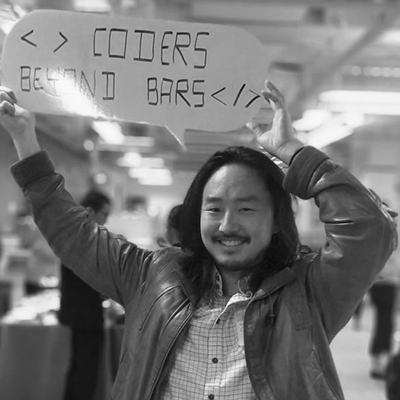 < > CODERS
BEYOND BARS </>